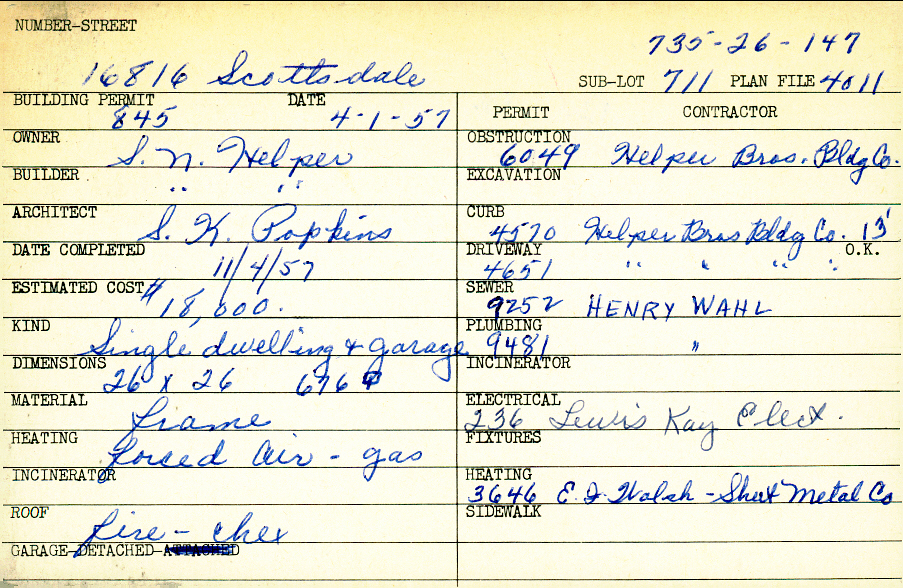 NUMBER-STREET
735-26-147
16816 Scottsdale
SUB-LOT 711 PLAN FILE 4011
BUILDING PERMIT DATE
845 4-1-57
PERMIT CONTRACTOR
OWNER
S. N. Helper
OBSTRUCTION
6049 Helper Bros. Bldg Co.
BUILDER
" "
EXCAVATION
ARCHITECT
S. K. Popkins
CURB
4570 Helper Bros Bldg Co. 13'
DATE COMPLETED
11/4/57
DRIVEWAY O.K.
4651 " " " "
ESTIMATED COST
$18,000.
SEWER
9252 HENRY WAHL
KIND
Single dwelling & garage
PLUMBING
9481 "
DIMENSIONS
26 x 26 676
INCINERATOR
MATERIAL
Frame
ELECTRICAL
236 Lewis Kay Elect.
HEATING
forced air - gas
FIXTURES
INCINERATOR
HEATING
3646 E. J. Walsh - Sheet Metal Co
ROOF
Fire - chex
SIDEWALK
GARAGE-DETACHED-ATTACHED